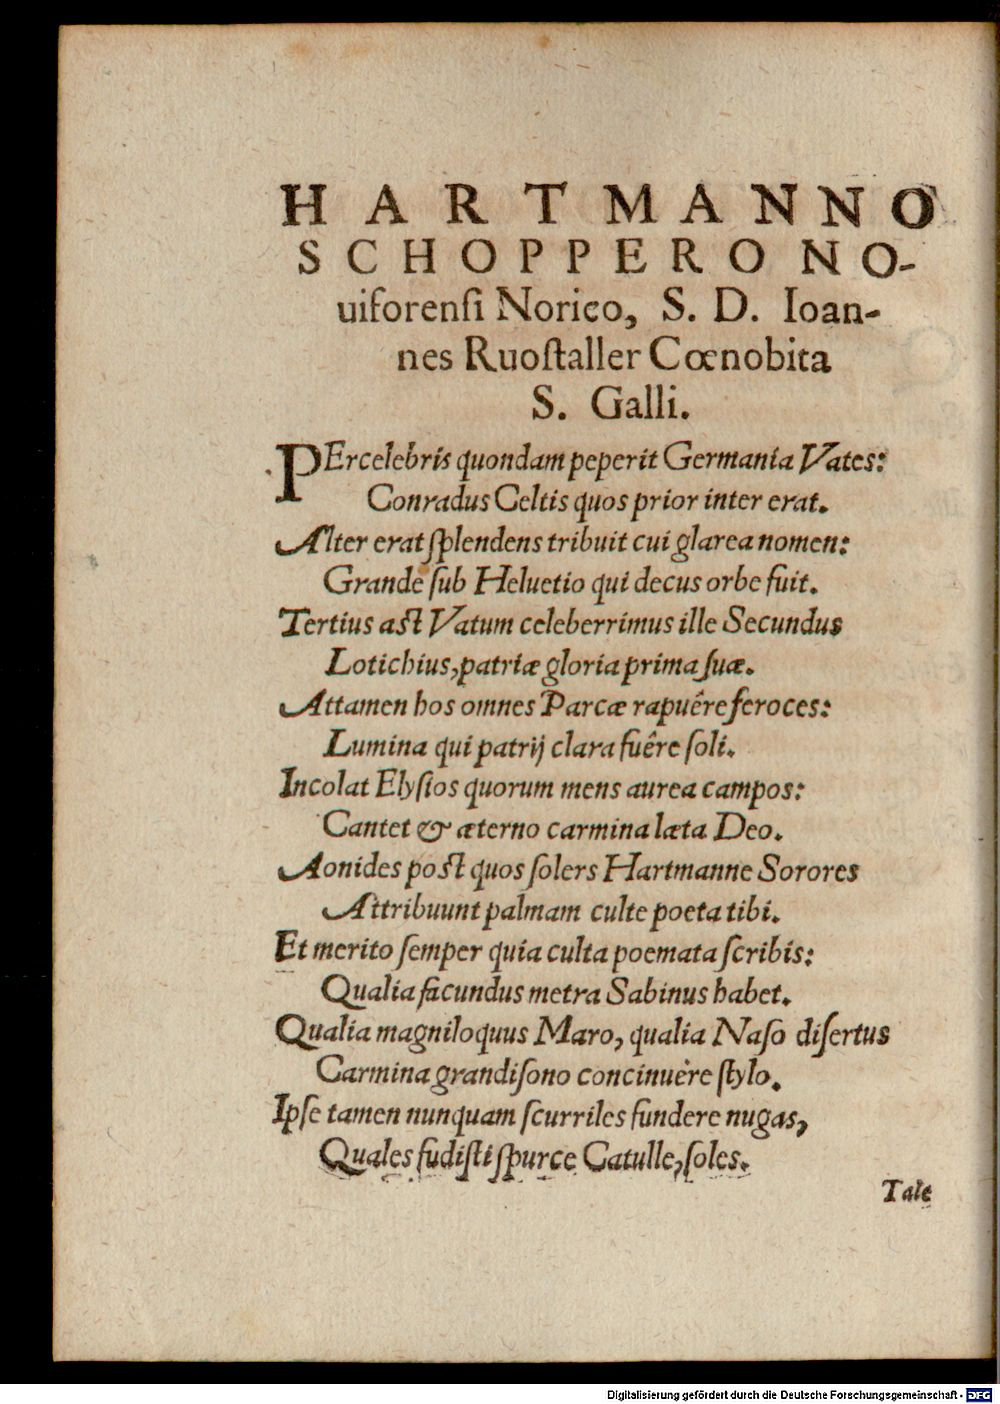 HARTMANNO
SCHOPPERO NO-
uiforenſi Norico, S. D. Ioan-
nes Ruoſtaller Cœnobita
S. Galli.
PErcelebris quondam peperit Germania Vates:
Conradus Celtis quos prior inter erat.
Alter erat ſplendens tribuit cui glarea nomen:
Grande ſub Heluetio qui decus orbe fuit.
Tertius aſt Vatum celeberrimus ille Secundus
Lotichius, patriæ gloria prima ſuæ.
Attamen hos omnes Parcæ rapuêre feroces:
Lumina qui patrij clara fuêre ſoli.
Incolat Elyſios quorum mens aurea campos:
Cantet & æterno carmina læta Deo.
Aonides poſt quos ſolers Hartmanne Sorores
Attribuunt palmam culte poeta tibi.
Et merito ſemper quia culta poemata ſcribis:
Qualia facundus metra Sabinus habet.
Qualia magniloquus Maro, qualia Naſo diſertus
Carmina grandiſono concinuère ſtylo.
Ipſe tamen nunquam ſcurriles fundere nugas,
Quales fudiſti ſpurce Catulle, ſoles.
Tale
Digitalisierung gefördert durch die Deutsche Forschungsgemeinschaft - DFG